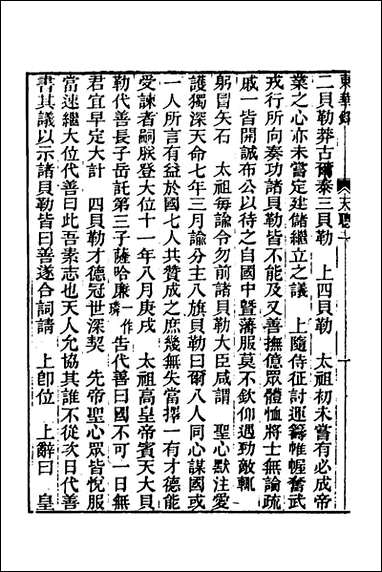 東華錄 天聰一 一
二貝勒莽古爾泰三貝勒 上四貝勒 太祖初未嘗有必成帝
業之心亦未嘗定建儲繼立之議 上隨侍征討運籌帷幄奮武
戎行所向奏功諸貝勒皆不能及又善撫億眾體恤將士無論疏
戚一皆開誠布公以待之自國中暨藩服莫不欽仰遇勁敵輒
躬冒矢石 太祖每諭令勿前諸貝勒大臣咸謂 聖心默注愛
護獨深天命七年三月諭分主八旗貝勒曰爾八人同心謀國或
一人所言有益於國七人共贊成之庶幾無失當擇一有才德能
受諫者嗣朕登大位十一年八月庚戌 太祖高皇帝賓天大貝
勒代善長子岳託第三子薩哈廉一作璘告代善曰國不可一日無
君宜早定大計 四貝勒才德冠世深契 先帝聖心眾皆悅服
當速繼大位代善曰此吾素志也天人允協其誰不從次日代善
書其議以示諸貝勒皆曰善遂合詞請 上卽位 上辭曰 皇